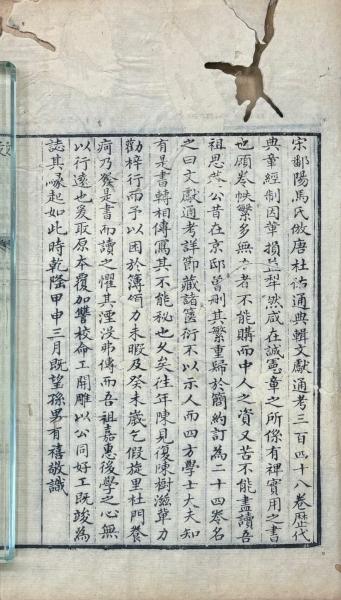 宋鄱陽馬氏倣唐杜佑通典輯文獻通考三百四十八卷歷代
典章經制因革損益犁然咸在誠憲章之所係有裨實用之書
也顧卷帙繁多無力者不能購而中人之資又苦不能盡讀吾
祖思 公昔在京邸曾刪其繁重歸於簡約訂為二十四卷名
之曰文獻通考詳節藏諸篋衍不以示人而四方學士大夫知
有是書轉相傳寫其不能秘也久矣往年陳見復陳樹滋輩力
勸梓行而予以困於簿領力未暇及癸未歲乞假旋里杜門養
疴乃發是書而讀之懼其湮沒弗傳而吾祖嘉惠後學之心無
以行遠也爰取原本覆加讐校命工開雕以公同好工既竣為
誌其緣起如此時乾隆甲申三月既望孫男有禧敬識